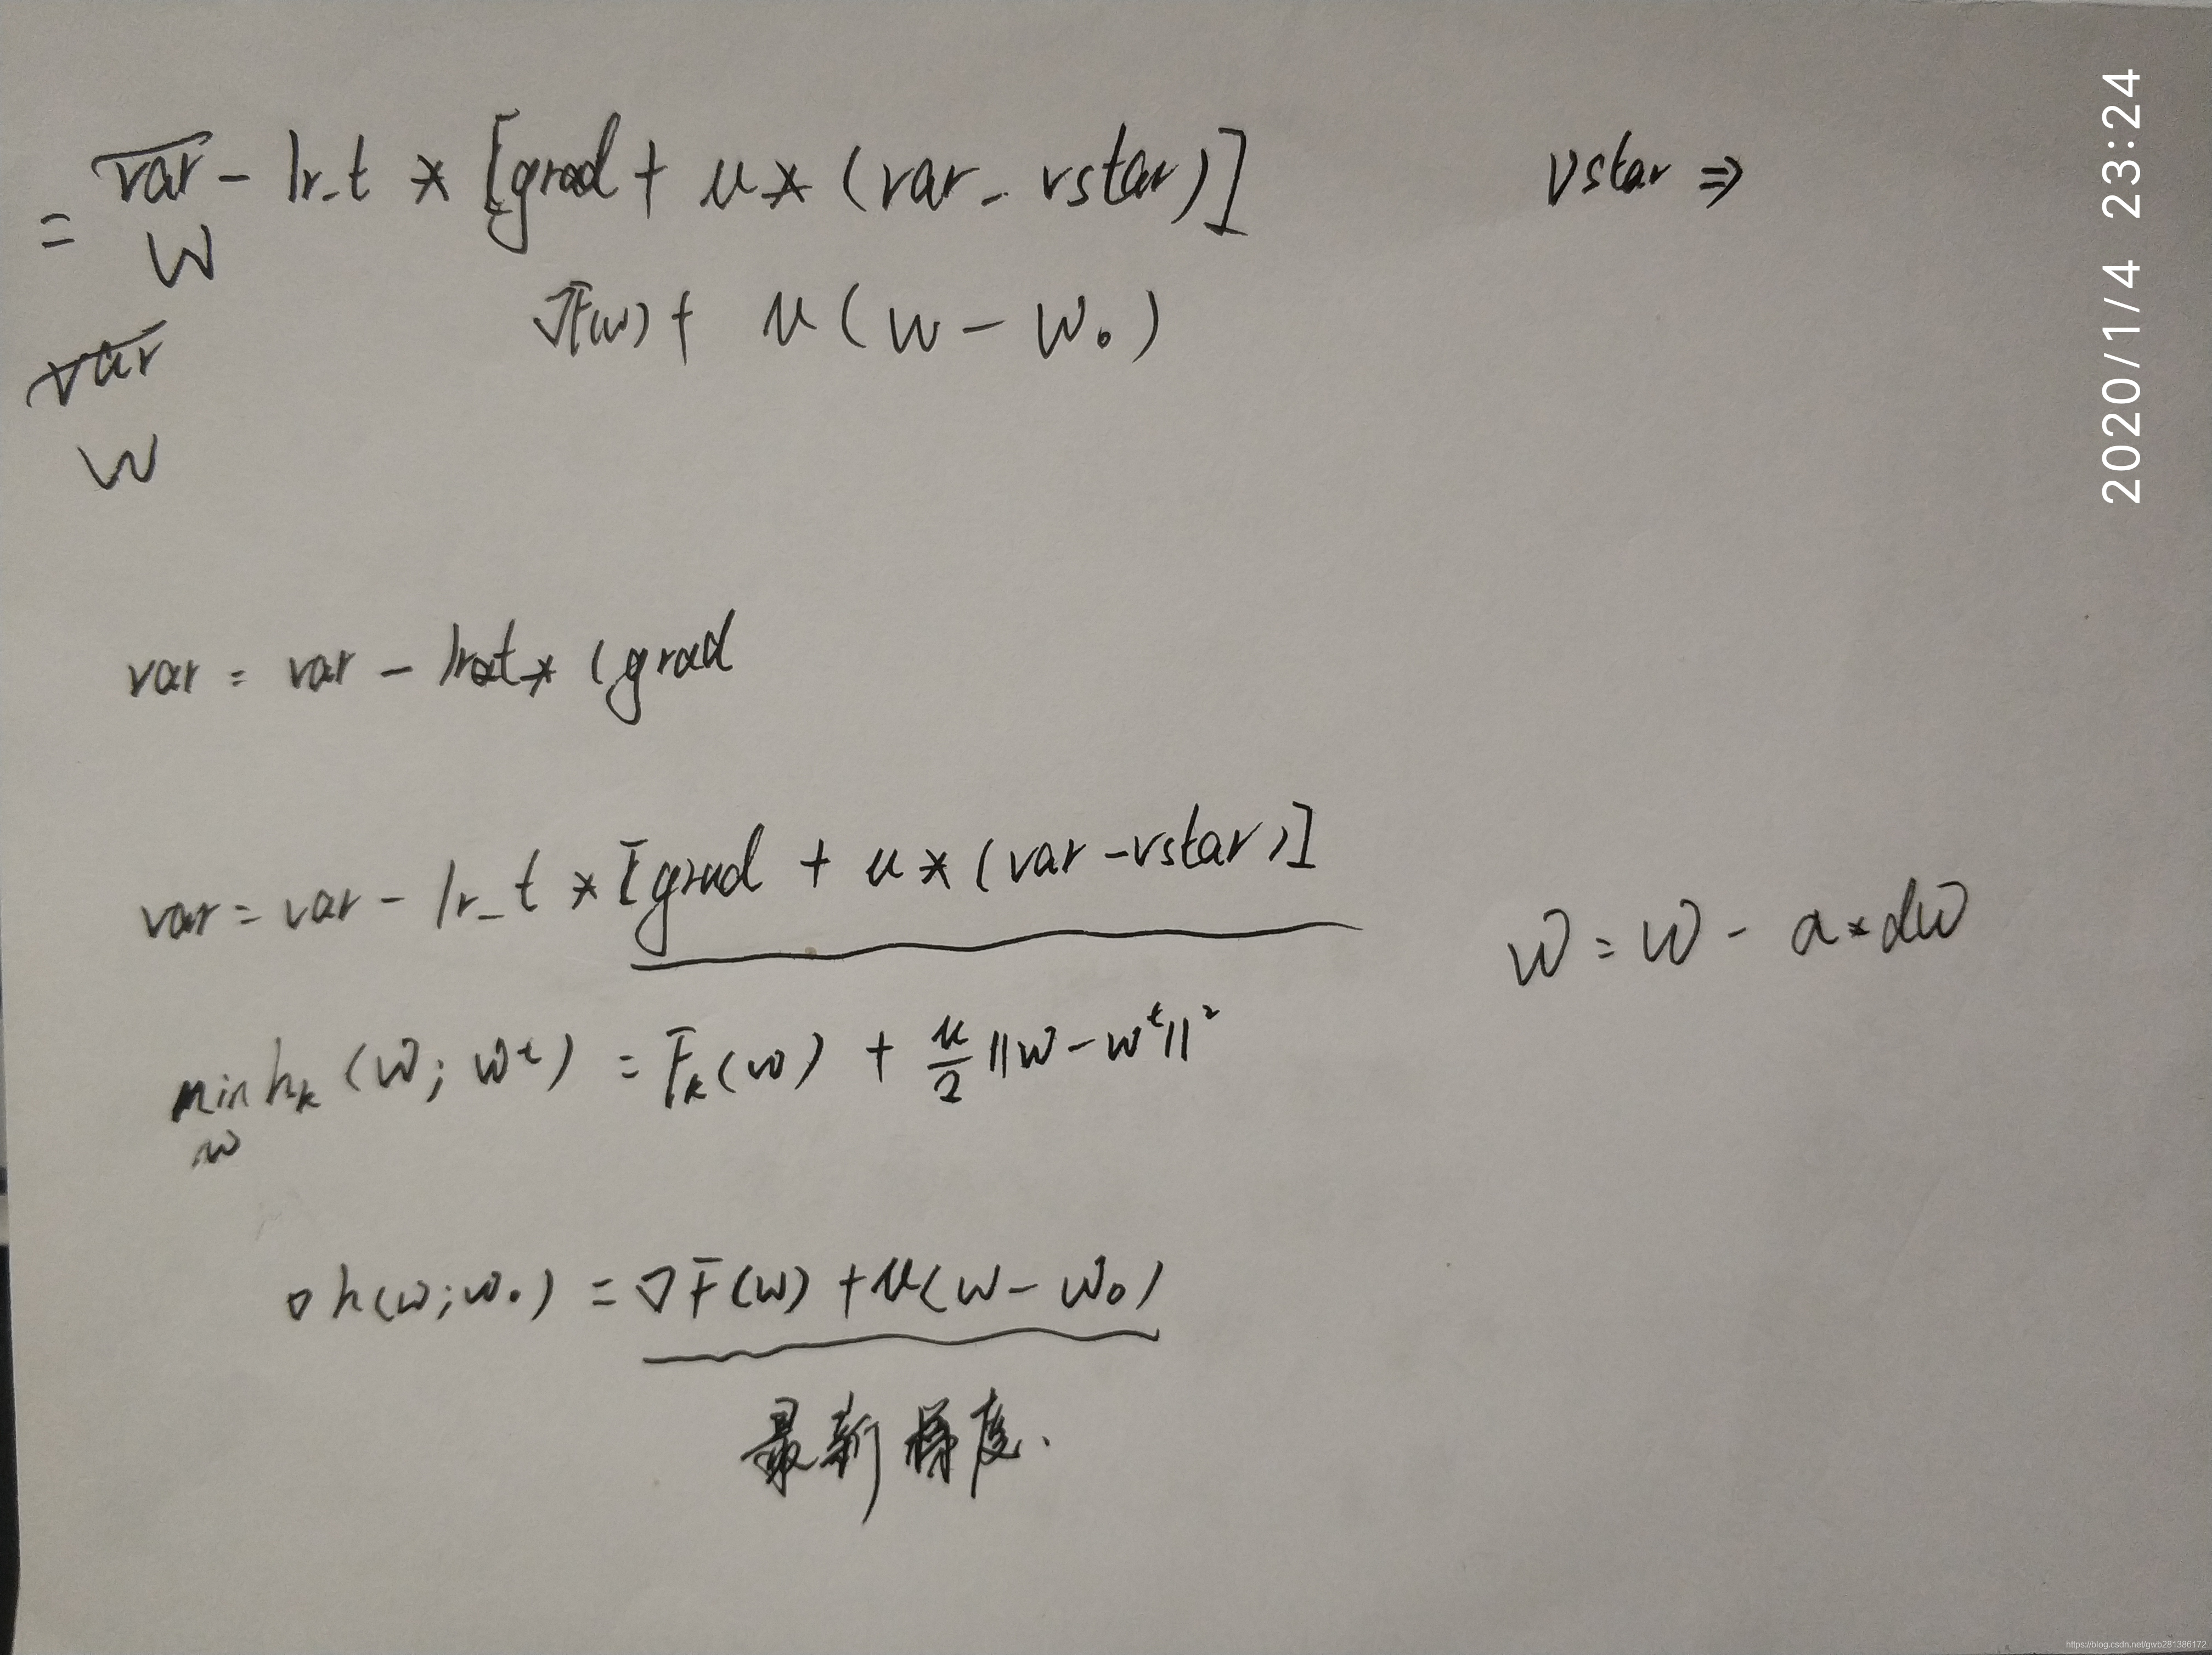 var - lr_t * [grad + μ * (var - vstar)] vstar ⇒
= w
∇F(w) + μ(w - w₀)
var
w
var = var - lr_t * (grad
var = var - lr_t * [grad + μ * (var - vstar)]
w = w - α * dw
min hₖ(w; wᵗ) = Fₖ(w) + μ/2 ||w - wᵗ||²
w
∇h(w; w₀) = ∇F(w) + μ(w - w₀)
最新梯度.
2020/1/4 23:24
https://blog.csdn.net/gwb281386172